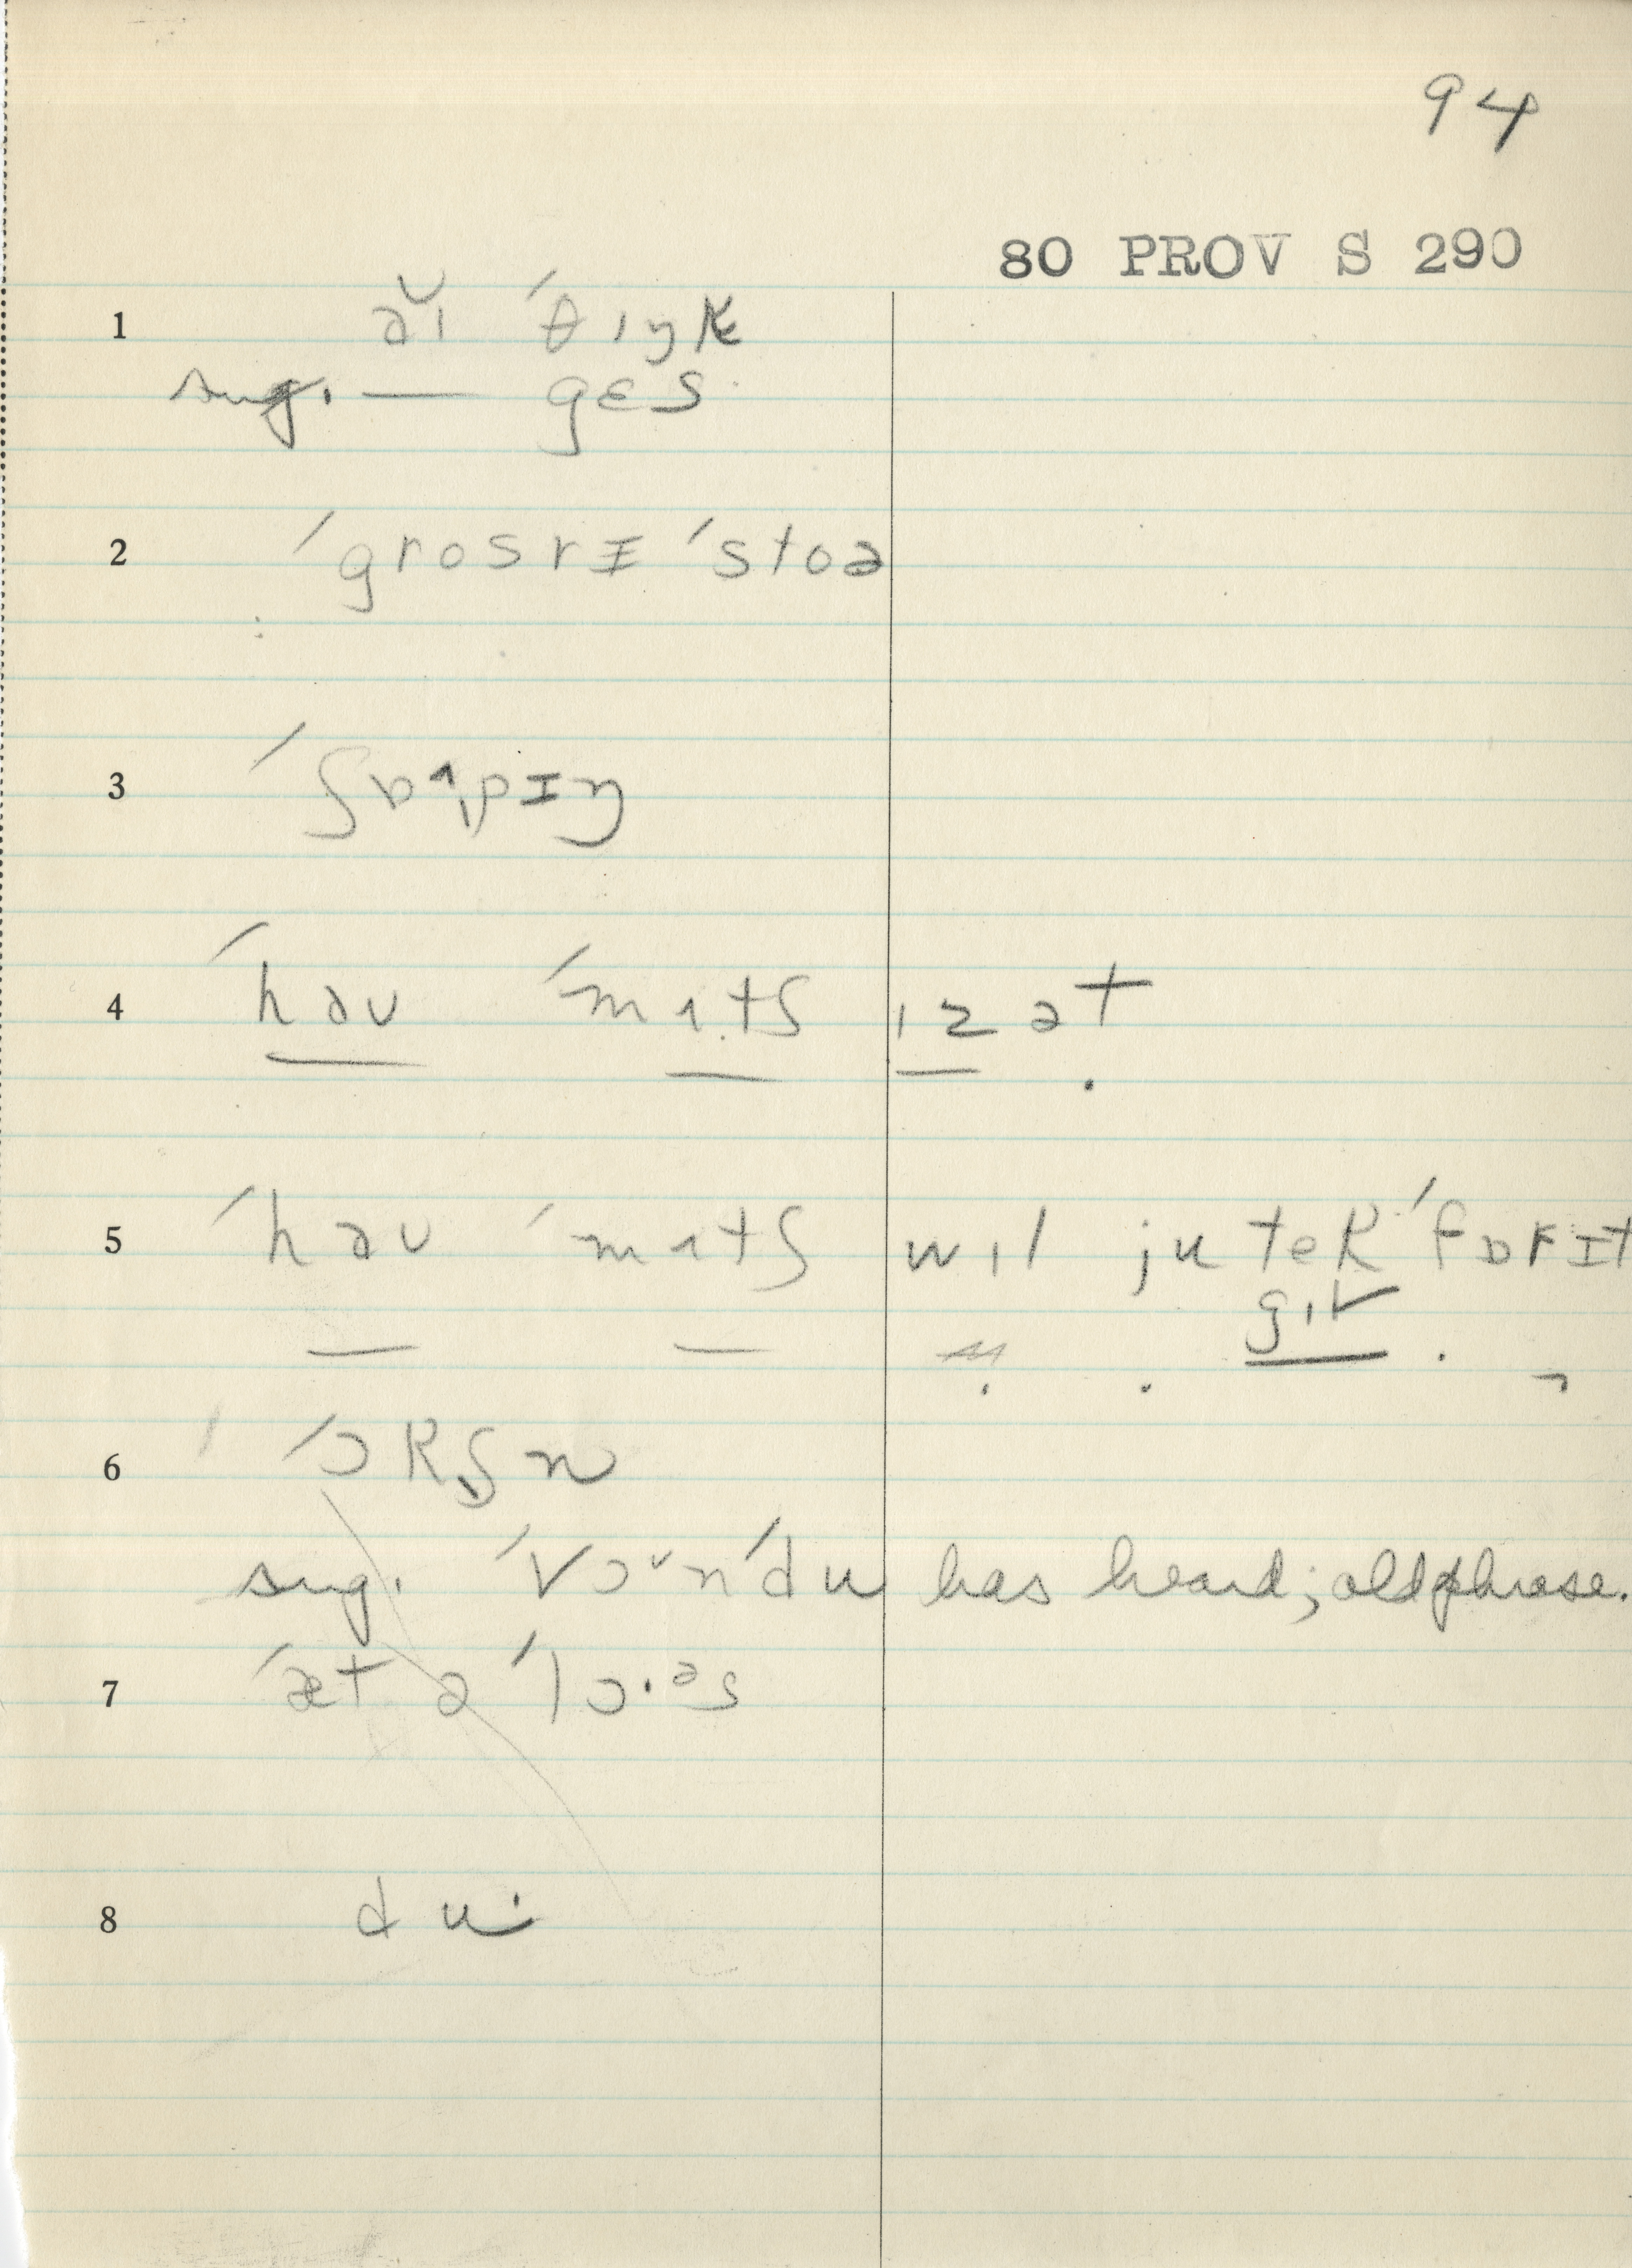 94
80 PROV S 290
1 əɪ̆ ˊθɪŋk
sug. — gɛs
2 ˊgrosrɪ ˊstoə
3 ˊʃɒˆpɪŋ
4 ˊhəʊ ˊmʌtʃ ɪz ət
5 ˊhəʊ ˊmʌtʃ wɪl ju tek ˊfɒrɪt
gɪv
6 ˊɔkʃn
sug. ˊvɔᵛnˊdu has heard; old phrase.
7 ˊæt ə ˊlɔ·ᵊs
8 du·